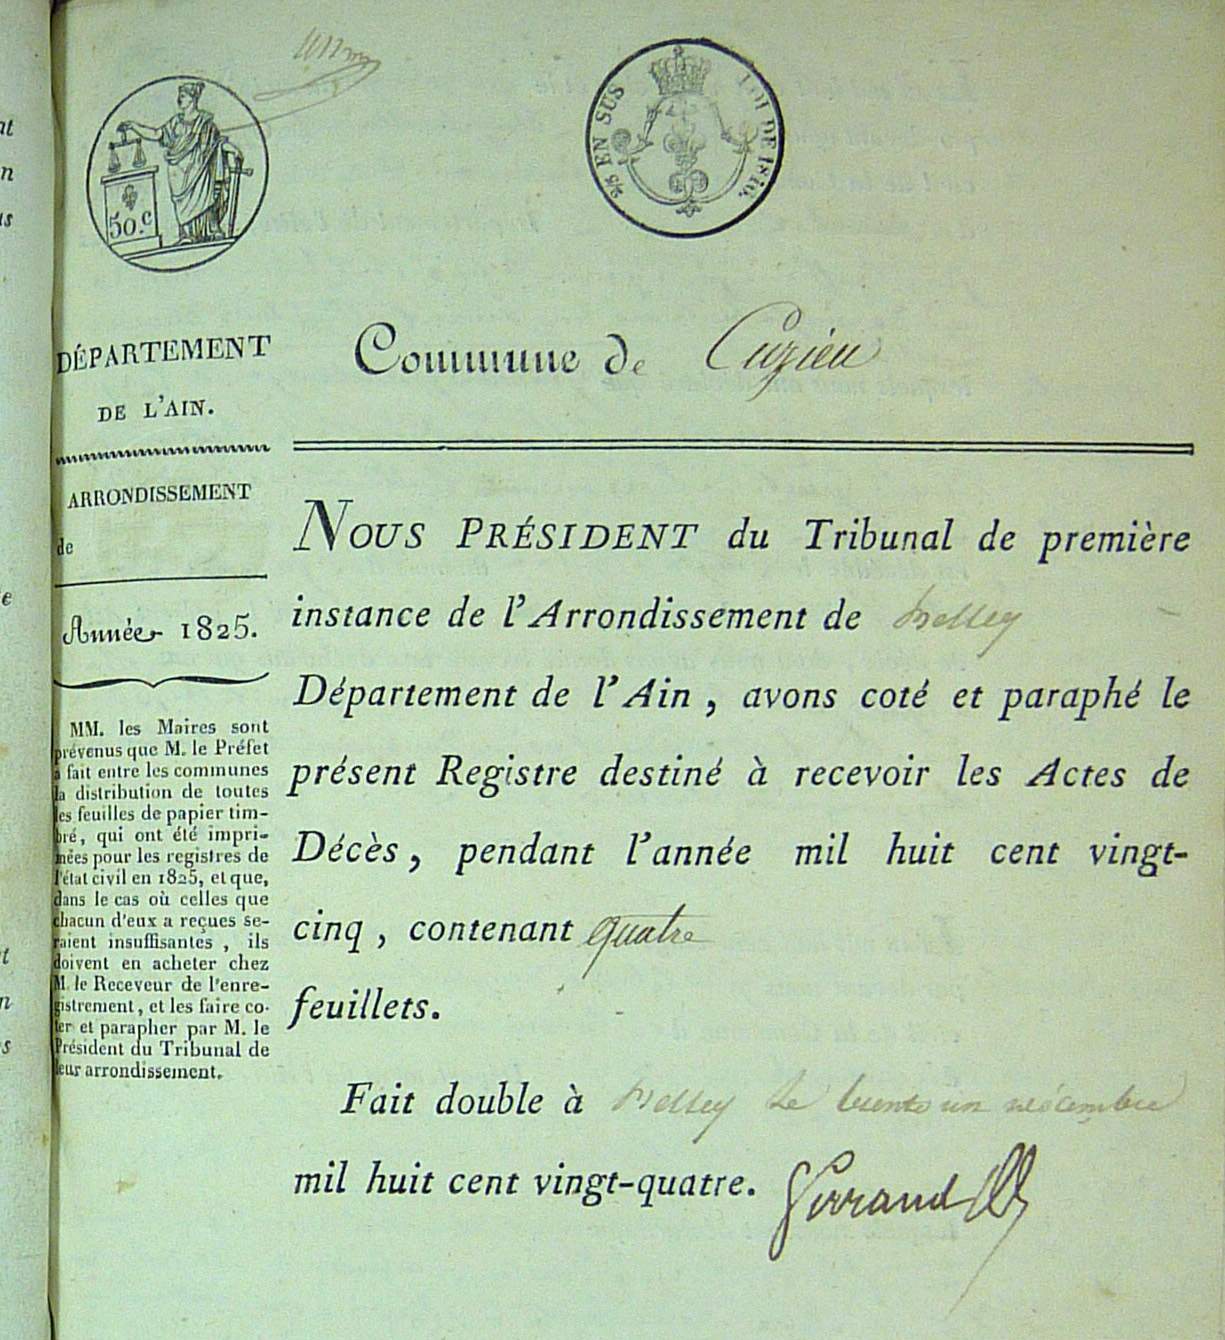 50.c
2/5 EN SUS
LOI DE 1816.
Commune de Cuzieu
DÉPARTEMENT
DE L'AIN.
ARRONDISSEMENT
de
Année 1825.
MM. les Maires sont
prévenus que M. le Préfet
a fait entre les communes
la distribution de toutes
les feuilles de papier tim-
bré, qui ont été impri-
mées pour les registres de
l'état civil en 1825, et que,
dans le cas où celles que
chacun d'eux a reçues se-
raient insuffisantes, ils
doivent en acheter chez
M. le Receveur de l'enre-
gistrement, et les faire co-
ter et parapher par M. le
Président du Tribunal de
leur arrondissement.
NOUS PRÉSIDENT du Tribunal de première
instance de l'Arrondissement de Belley
Département de l'Ain, avons coté et paraphé le
présent Registre destiné à recevoir les Actes de
Décès, pendant l'année mil huit cent vingt-
cinq, contenant quatre
feuillets.
Fait double à Belley le trente un décembre
mil huit cent vingt-quatre.